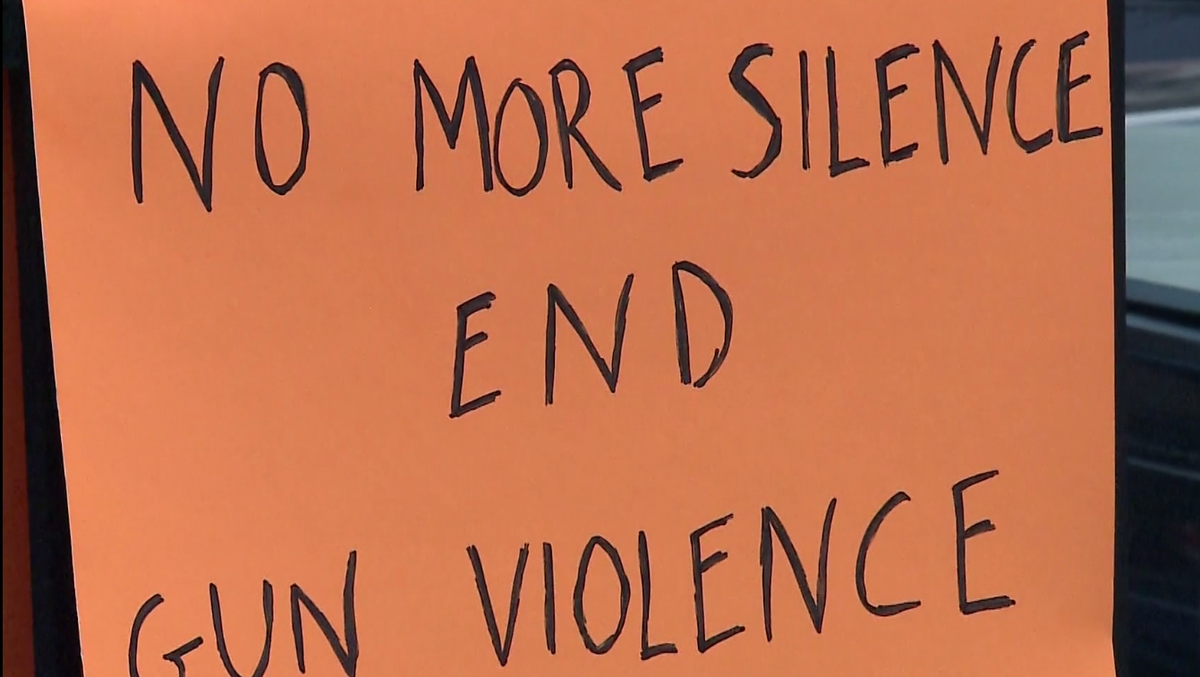 NO MORE SILENCE
END
GUN VIOLENCE